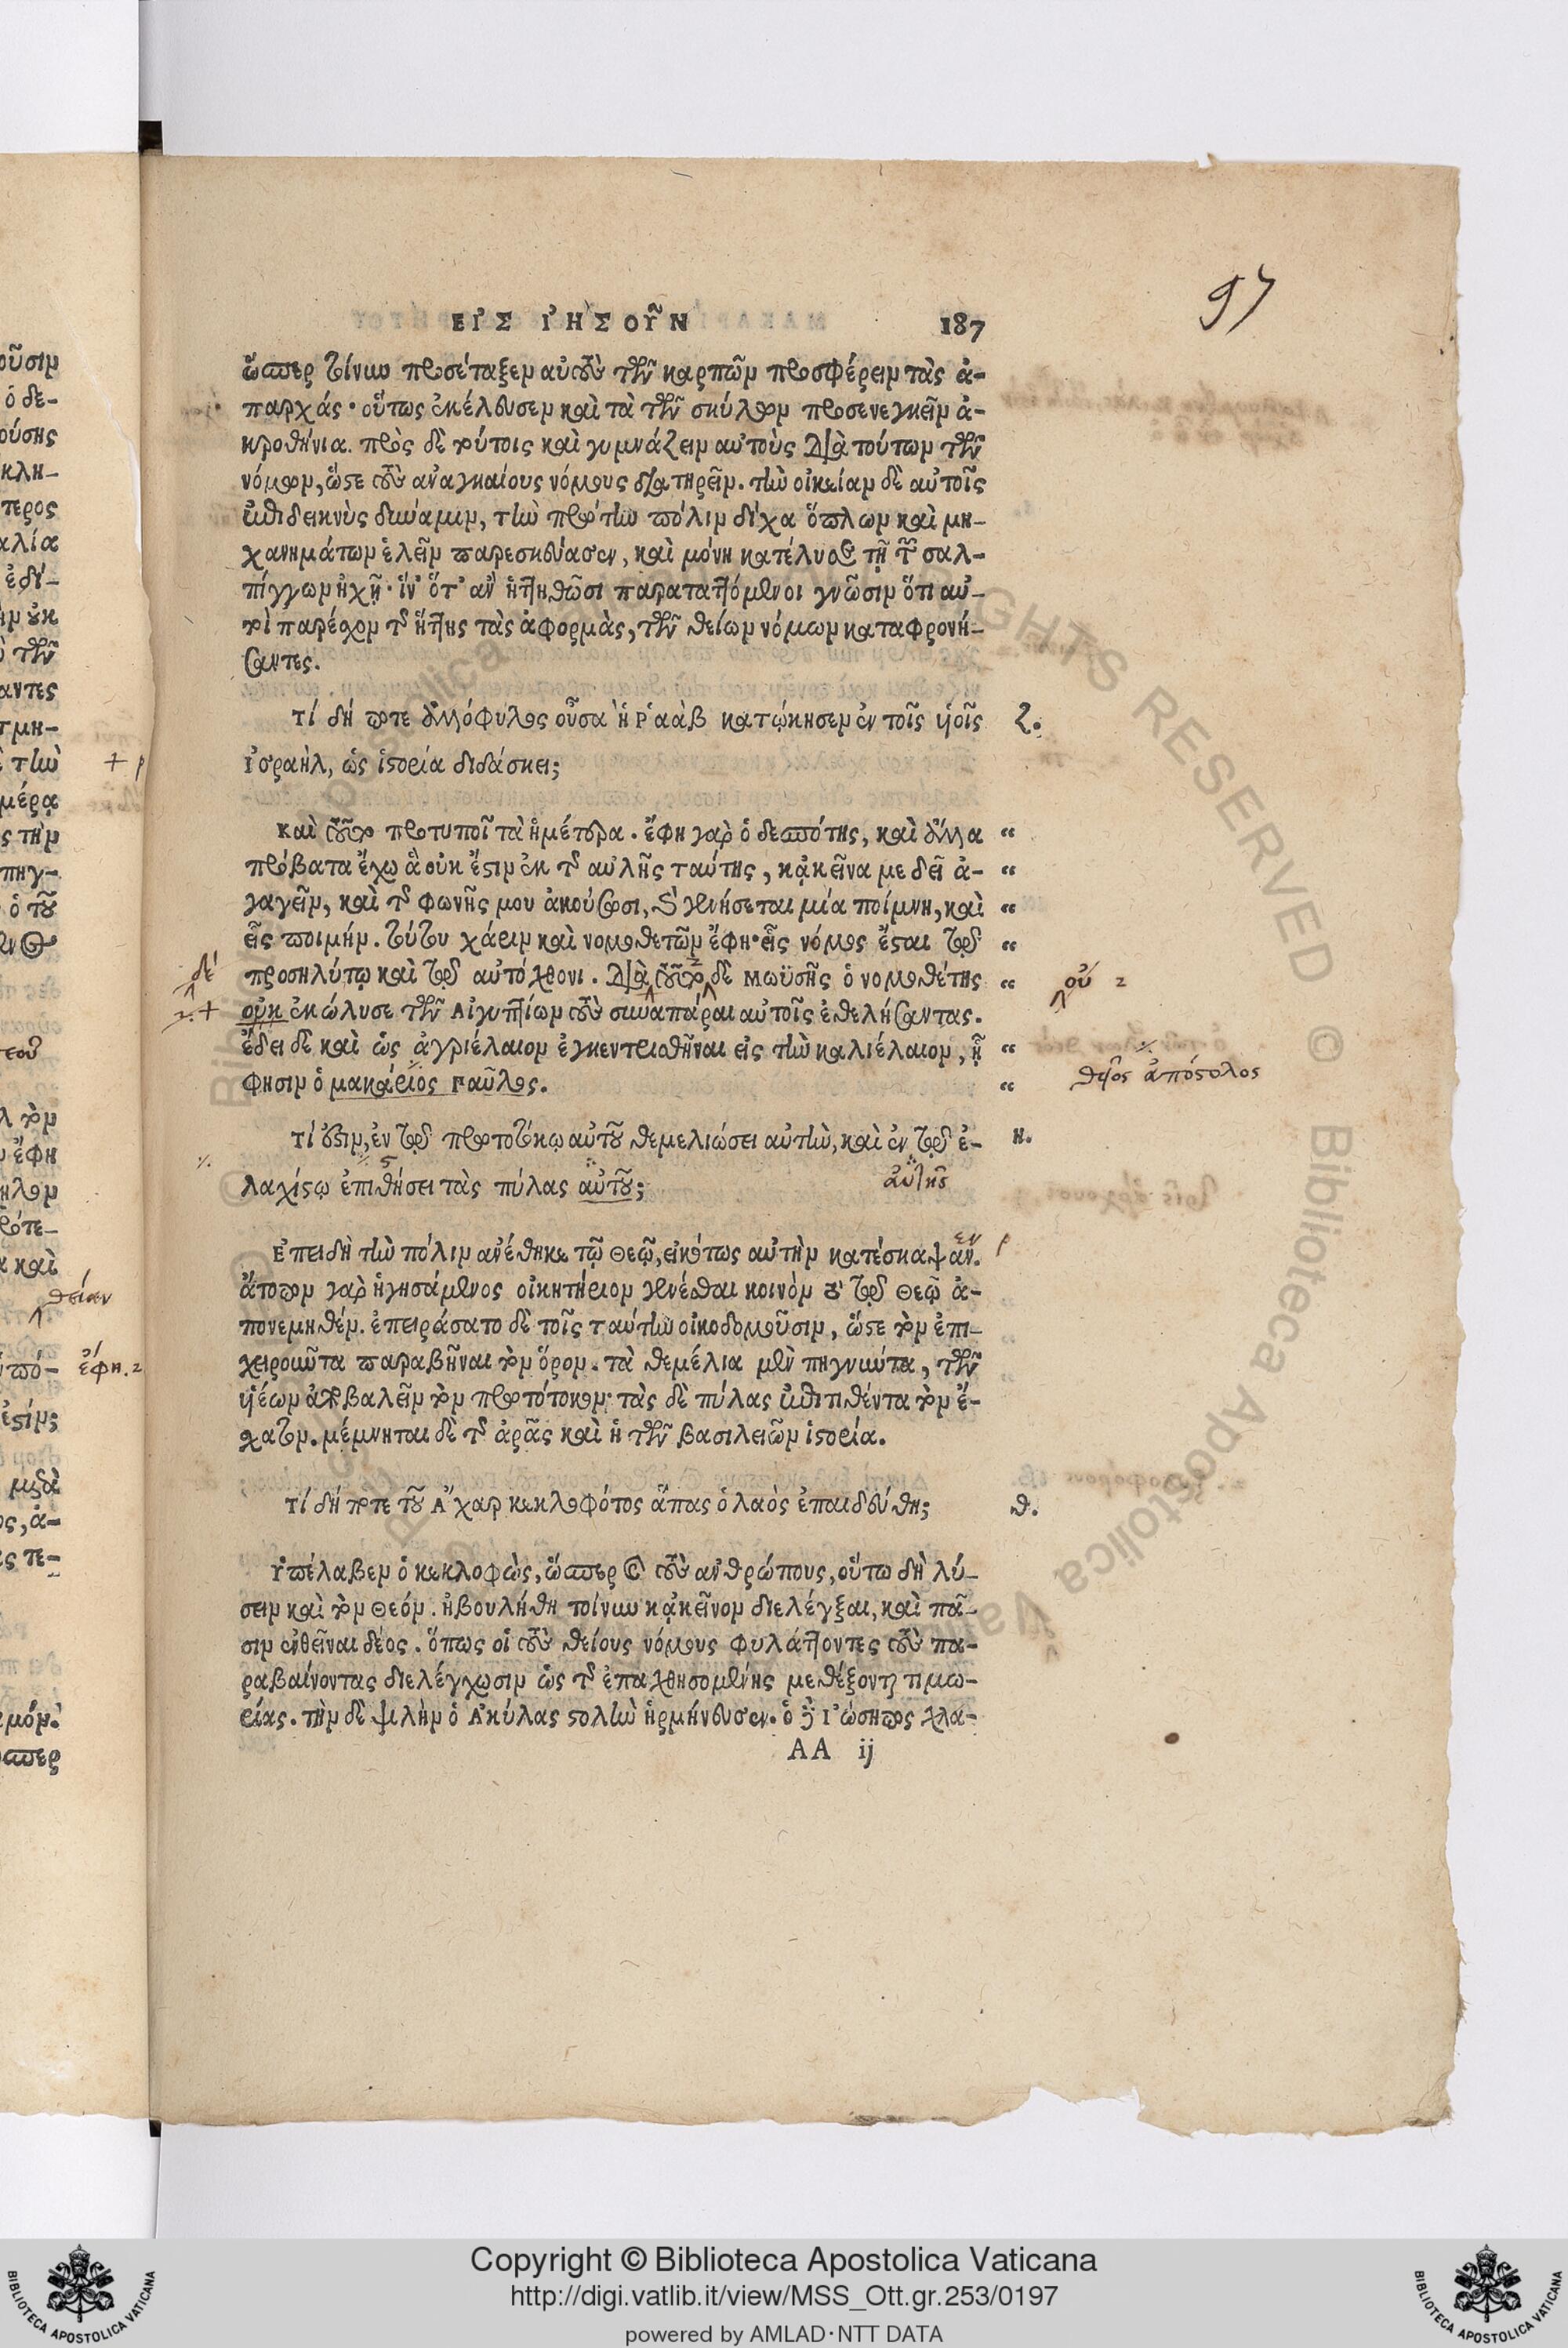 97
ΕΙ᾿Σ Ι᾿ΗΣΟΥ͂Ν 187
ὥσπερ τοίνυν προσέταξεν αὐτοὺς τῶν καρπῶν προσφέρειν τὰς ἀ-
παρχάς· οὕτως ἐκέλευσεν καὶ τὰ τῶν σκύλων προσενεγκεῖν ἀ-
κροθίνια. πρὸς δὲ τούτοις καὶ γυμνάζειν αὐτοὺς διὰ τούτων τῶν
νόμων, ὥστε τοὺς ἀναγκαίους νόμους διατηρεῖν. τὴν οἰκείαν δὲ αὐτοῖς
ἐπιδεικνὺς δύναμιν, τὴν πρώτην πόλιν δίχα ὅπλων καὶ μη-
χανημάτων ἑλεῖν παρεσκεύασεν, καὶ μόνῃ κατέλυσε τῇ τῶν σαλ-
πίγγων ἠχῇ· ἵν' ὅτ' ἂν ἡττηθῶσι παραταττόμενοι γνῶσιν ὅτι αὐ-
τοὶ παρέσχον τῆς ἥττης τὰς ἀφορμὰς, τῶν θείων νόμων καταφρονή-
σαντες.
τί δή ποτε ἀλλόφυλος οὖσα ἡ Ῥαὰβ κατῴκησεν ἐν τοῖς υἱοῖς ζ.
Ἰσραὴλ, ὡς ἱστορία διδάσκει;
Καὶ τοῦτο προτυποῖ τὰ ἡμέτερα. ἔφη γὰρ ὁ δεσπότης, καὶ ἄλλα “
πρόβατα ἔχω ἃ οὐκ ἔστιν ἐκ τῆς αὐλῆς ταύτης, κᾀκεῖνα με δεῖ ἀ- “
γαγεῖν, καὶ τῆς φωνῆς μου ἀκούσωσι, καὶ γενήσεται μία ποίμνη, καὶ “
εἷς ποιμήν. τούτου χάριν καὶ νομοθετῶν ἔφη· εἷς νόμος ἔσται τῷ “
δέ προσηλύτῳ καὶ τῷ αὐτόχθονι. Διὰ τοῦτο δὲ Μωϋσῆς ὁ νομοθέτης “ οὐ 2
2. + οὐκ ἐκώλυσε τῶν Αἰγυπτίων τοὺς συναπάραι αὐτοῖς ἐθελήσαντας.
ἔδει δὲ καὶ ὡς ἀγριέλαιον ἐγκεντρισθῆναι εἰς τὴν καλιέλαιον, ᾗ “
φησιν ὁ μακάριος Παῦλος. “ θεῖος ἀπόστολος
τί ἐστιν, ἐν τῷ πρωτοτόκῳ αὐτοῦ θεμελιώσει αὐτὴν, καὶ ἐν τῷ ἐ- η.
λαχίστῳ ἐπιθήσει τὰς πύλας αὐτοῦ; αὐτῆς
Ἐπειδὴ τὴν πόλιν ἀνέθηκε τῷ Θεῷ, εἰκότως αὐτὴν κατέσκαψαν. εν
ἄτοπον γὰρ ἡγησάμενος οἰκητήριον γενέσθαι κοινὸν τὸ τῷ Θεῷ ἀ-
πονεμηθέν. ἐπειράσατο δὲ τοῖς ταύτην οἰκοδομοῦσιν, ὥστε τὸν ἐπι-
χειροῦντα παραβῆναι τὸν ὅρον. τὰ θεμέλια μὲν πηγνύντα, τῶν
υἱέων ἀποβαλεῖν τὸν πρωτότοκον· τὰς δὲ πύλας ἐπιτιθέντα τὸν ἔ-
σχατον. μέμνηται δὲ τῆς ἀρᾶς καὶ ἡ τῶν βασιλειῶν ἱστορία.
τί δή ποτε τοῦ Ἄχαρ κεκλοφότος ἅπας ὁ λαὸς ἐπαιδεύθη; θ.
Ὑπέλαβεν ὁ κεκλοφὼς, ὥσπερ καὶ τοὺς ἀνθρώπους, οὕτω δὴ λύ-
σειν καὶ τὸν Θεόν. ἠβουλήθη τοίνυν κᾀκεῖνον διελέγξαι, καὶ πᾶ-
σιν ἐνθεῖναι δέος. ὅπως οἱ τοὺς θείους νόμους φυλάττοντες τοὺς πα-
ραβαίνοντας διελέγχωσιν ὡς τῆς ἐπαχθησομένης μεθέξοντες τιμω-
ρίας. τὴν δὲ ψιλὴν ὁ Ἀκύλας στολὴν ἡρμήνευσεν. ὁ δὲ Ἰώσηπος χλα-
AA ij
Copyright © Biblioteca Apostolica Vaticana
http://digi.vatlib.it/view/MSS_Ott.gr.253/0197
powered by AMLAD·NTT DATA